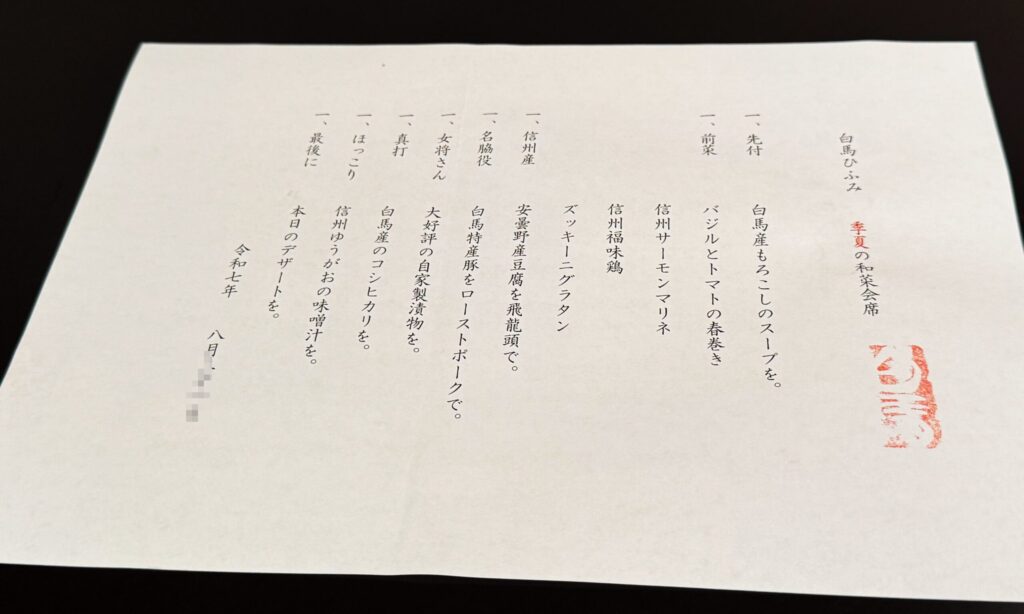 白馬ひふみ 季夏の和菜会席
一、先付 白馬産もろこしのスープを。
一、前菜 バジルとトマトの春巻き
信州サーモンマリネ
信州福味鶏
ズッキーニグラタン
一、信州産 安曇野産豆腐を飛龍頭で。
一、名脇役 白馬特産豚をローストポークで。
一、女将さん 大好評の自家製漬物を。
一、真打 白馬産のコシヒカリを。
一、ほっこり 信州ゆうがおの味噌汁を。
一、最後に 本日のデザートを。
令和七年 八月